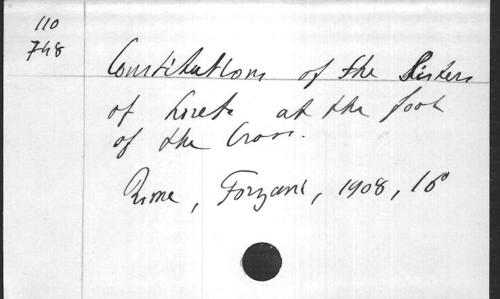 110
748
Constitutions of the Sisters
of Loreto at the foot
of the Cross.
Rome, Forzani, 1908, 16°